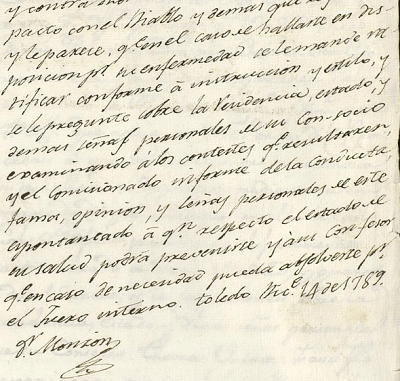 y contra
pacto con el Diablo y demas que
y le parece, q.e en el caso se hallare en dis
posicion p.r su enfermedad se le mande ra
tificar conforme à instruccion y estilo, y
se le pregunte sobre la Residencia, estado, y
demas señas personales de su Consocio
examinando a los contestes q.e resultaren,
y el Comisionado informe de la Conducta,
fama, opinion, y señas personales de este
espontaneado à q.n respecto el estado de
su salud podrà prevenirse y à su Confesor
q.e en caso de necesidad pueda absolverle p.r
el fuero interno. Toledo Dic.e 14 de 1789.
D.r Monzon